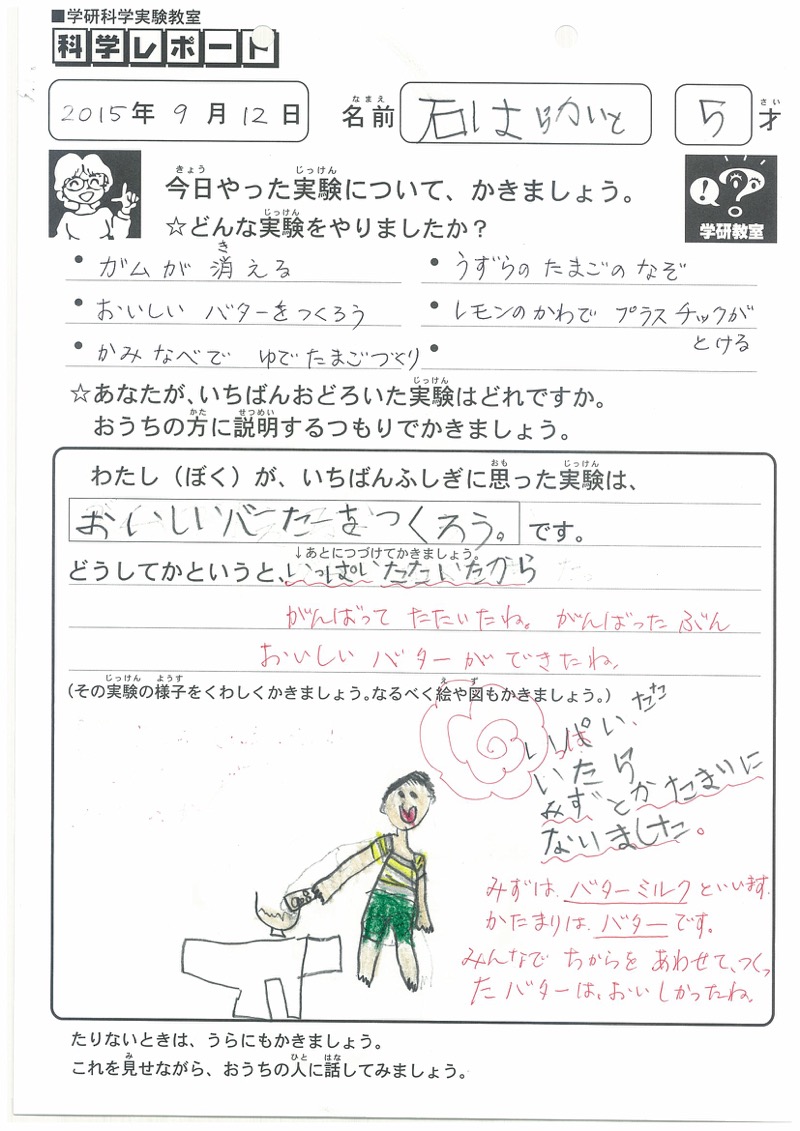 ■学研科学実験教室
科学レポート
2015年 9月 12日 名前 石はらかいと 5才
なまえ さい
きょう じっけん
今日やった実験について、かきましょう。
じっけん
☆どんな実験をやりましたか?
学研教室
き
・ガムが 消える
・うずらの たまごの なぞ
・おいしい バターをつくろう
・レモンのかわで プラスチックが
とける
・かみなべで ゆでたまごづくり
・
じっけん
☆あなたが、いちばんおどろいた実験はどれですか。
かた せつめい
おうちの方に説明するつもりでかきましょう。
おも じっけん
わたし(ぼく)が、いちばんふしぎに思った実験は、
おいしいバターをつくろう。です。
↓あとにつづけてかきましょう。
どうしてかというと、いっぱいたたいたから
がんばって たたいたね。がんばった ぶん
おいしい バターが できたね。
じっけん ようす え ず
(その実験の様子をくわしくかきましょう。なるべく絵や図もかきましょう。)
いっぱい、たた
いたら
みずとかたまりに
ないました。
みずは、バターミルクといいます。
かたまりは、バターです。
みんなで ちからを あわせて、つくっ
たバターは、おいしかったね。
たりないときは、うらにもかきましょう。
み ひと はな
これを見せながら、おうちの人に話してみましょう。